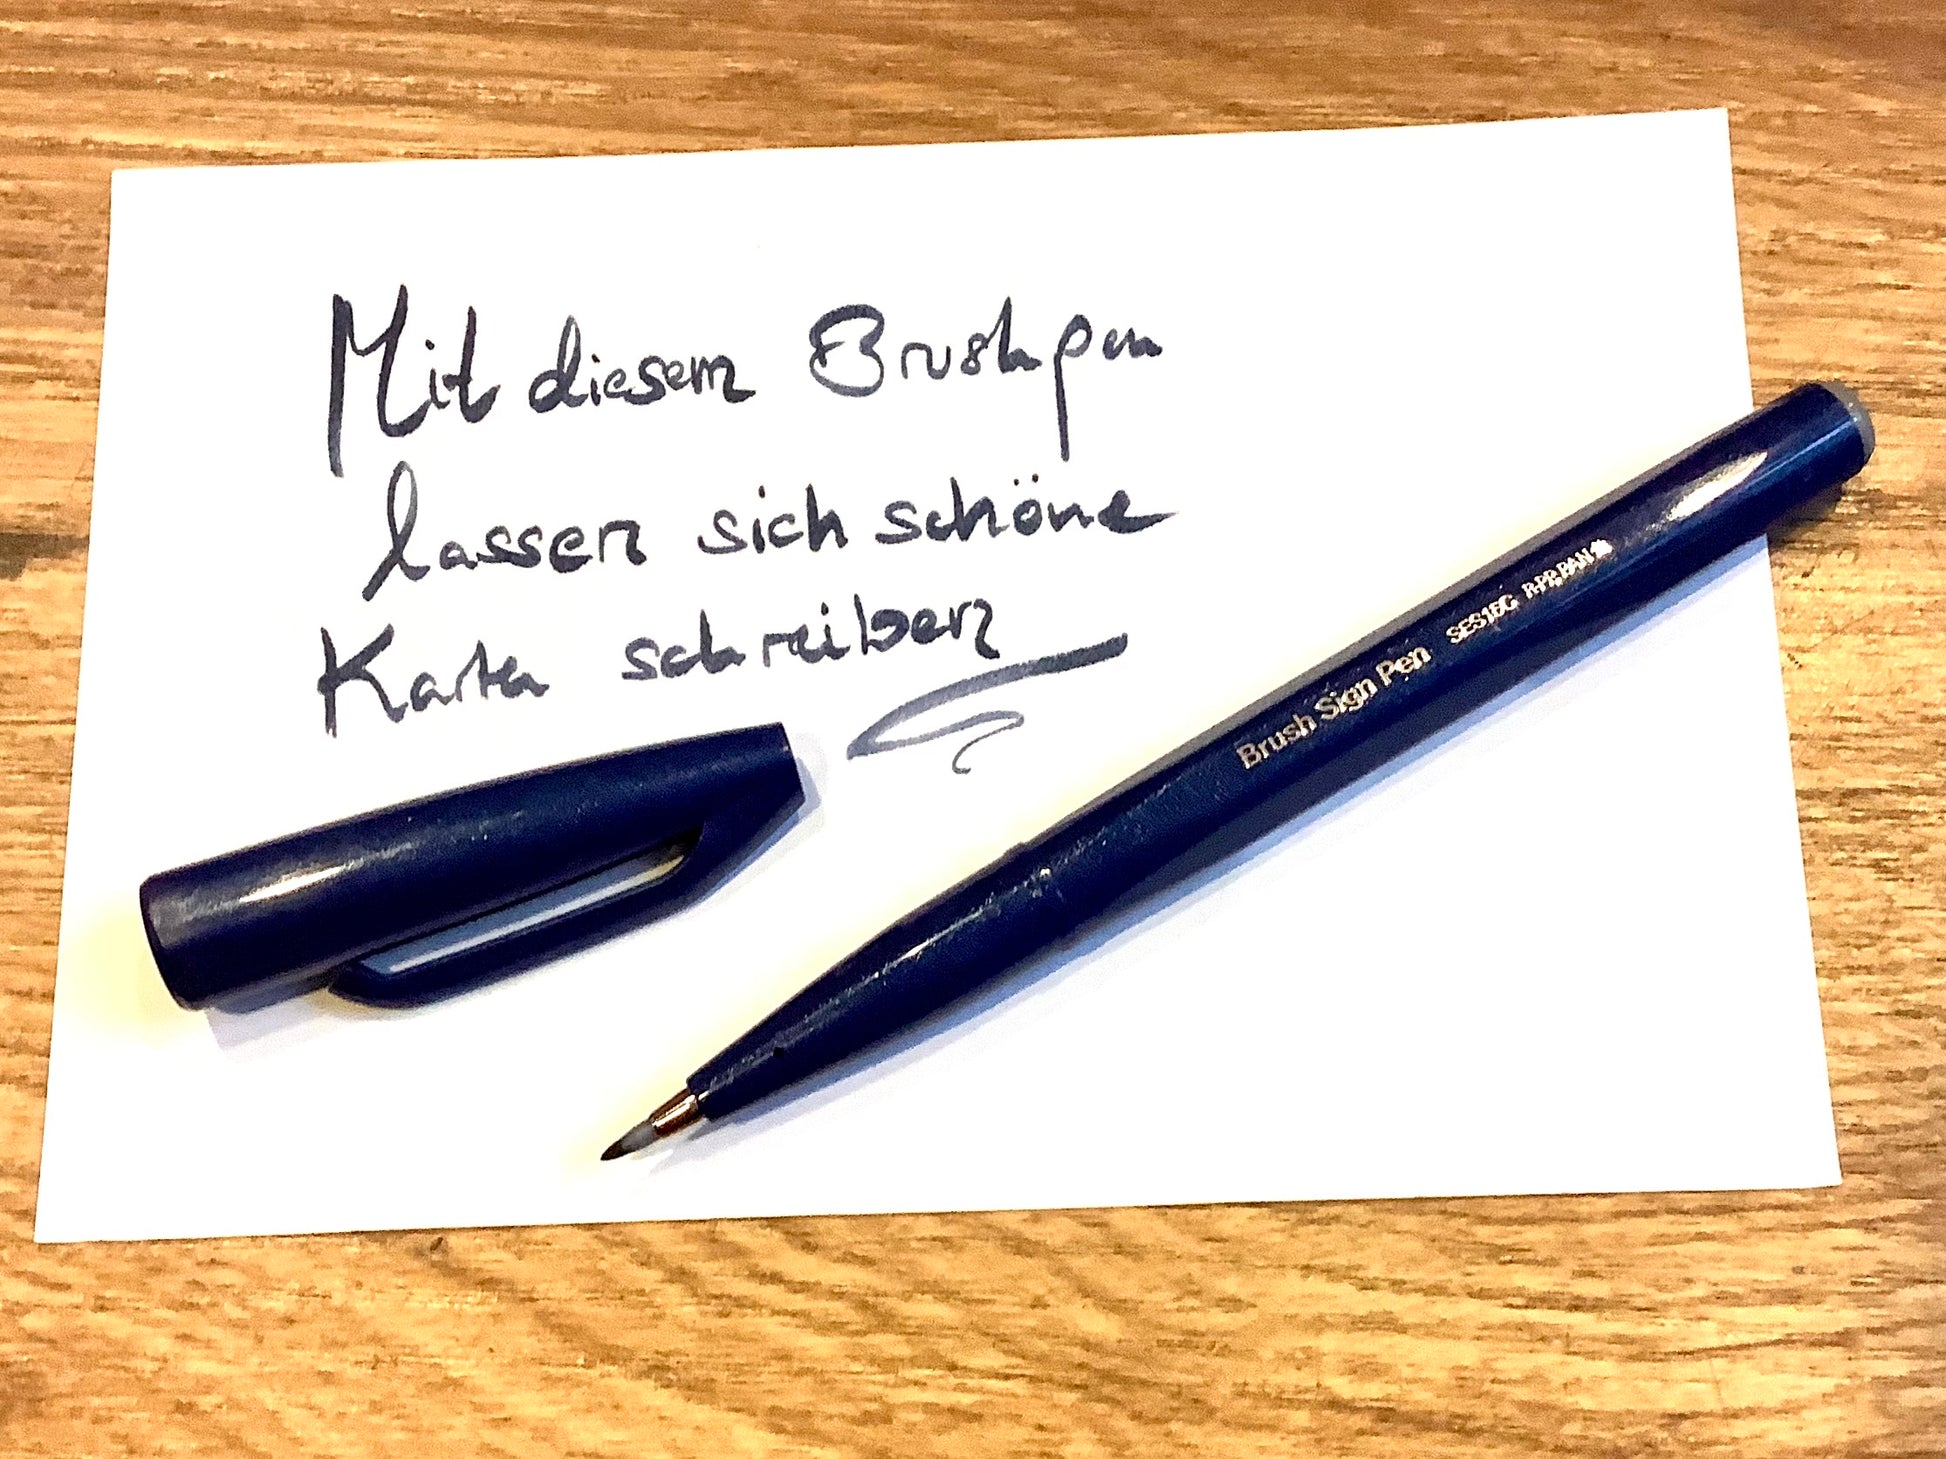 Mit diesem Brushpen
lassen sich schöne
Karten schreiben
Brush Sign Pen SES15C